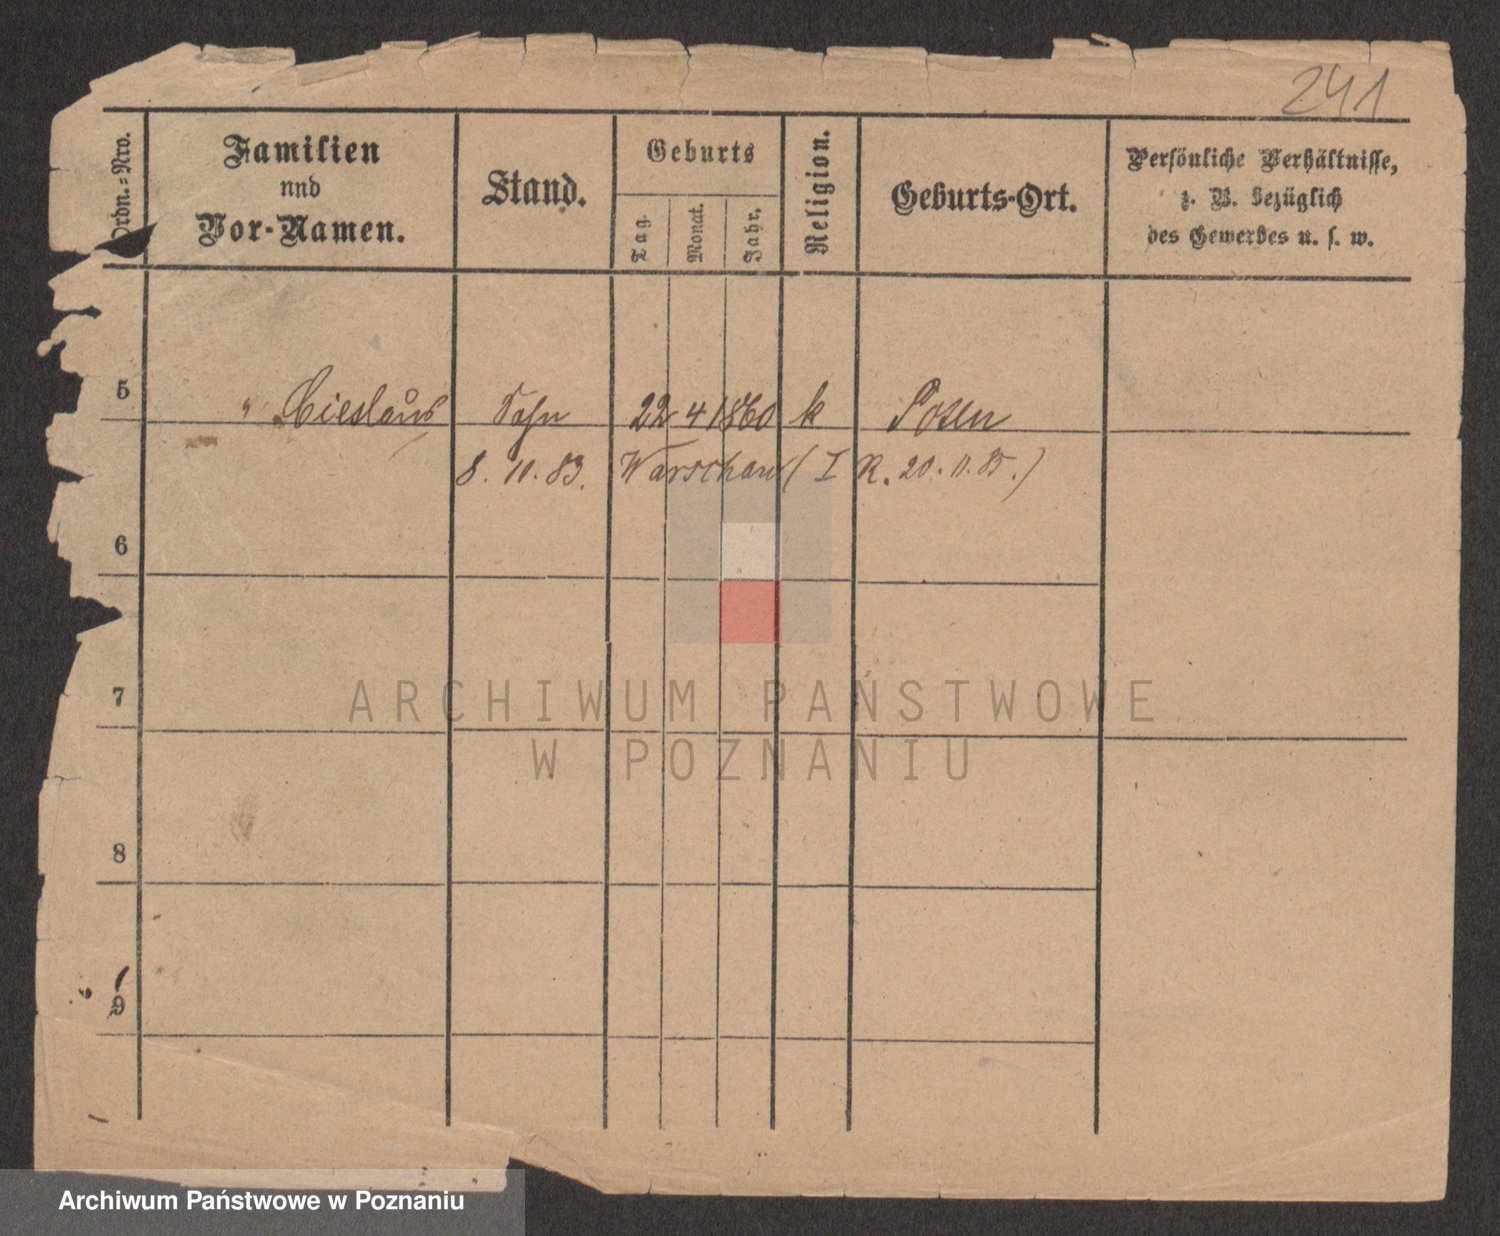 241
Ordn.-Nro.
Familien
und
Vor-Namen.
Stand.
Geburts
Tag.
Monat.
Jahr.
Religion.
Geburts-Ort.
Persönliche Verhältnisse,
z. B. bezüglich
des Gewerbes u. s. w.
5 " Cieslaus Sohn 22 4 1860 k Posen
8. 11. 83. Warschau (I R. 20. 11. 85.)
6
7
8
9
ARCHIWUM PAŃSTWOWE
W POZNANIU
Archiwum Państwowe w Poznaniu